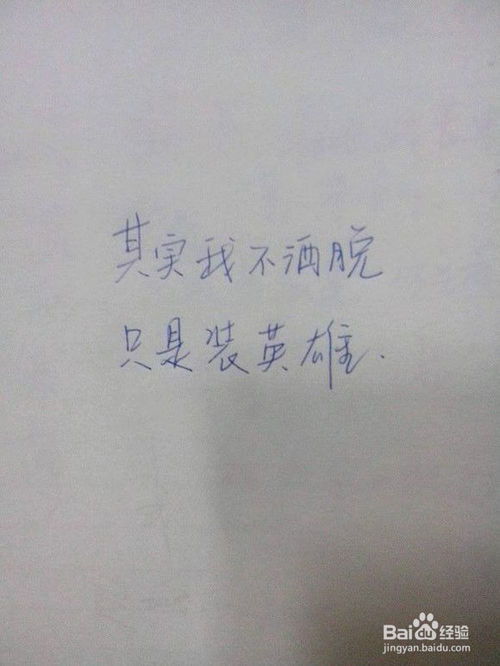 其实我不洒脱
只是装英雄.
Baidu经验
jingyan.baidu.com